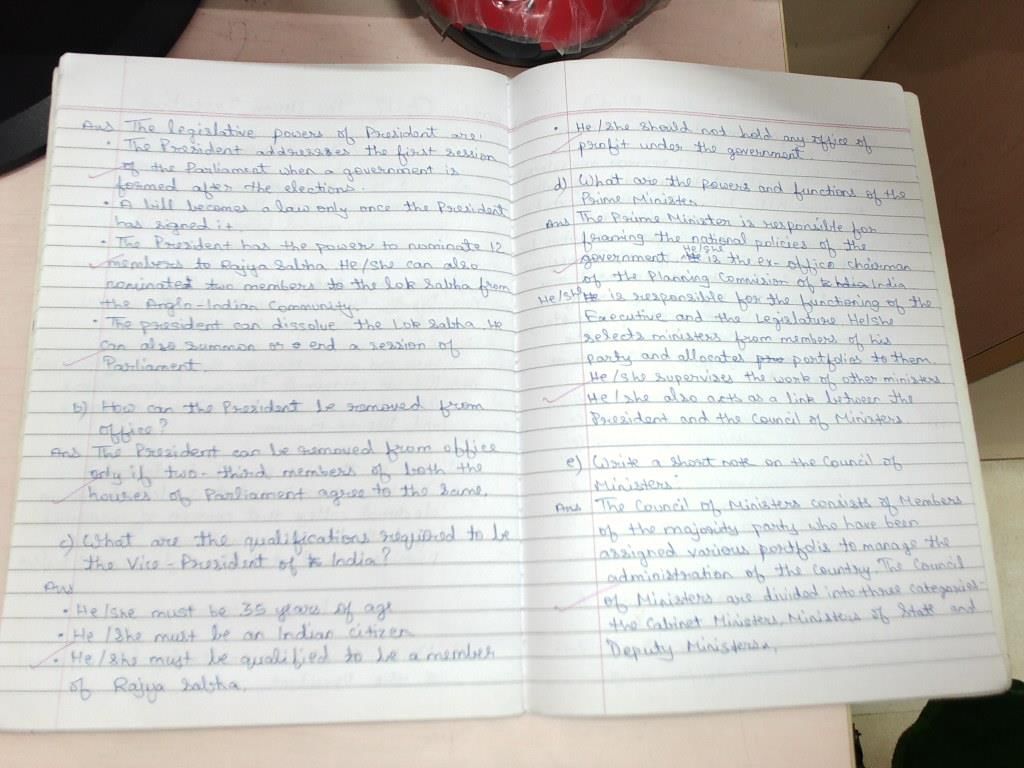 Ans The legislative powers of President are:
• The President addresses the first session
of the Parliament when a government is
formed after the elections.
• A bill becomes a law only once the President
has signed it.
• The President has the power to nominate 12
members to Rajya Sabha He/She can also
nominates two members to the lok Sabha from
the Anglo-Indian Community.
• The president can dissolve the Lok Sabha He
can also summon or end a session of
Parliament.
b) How can the President be removed from
office?
Ans The President can be removed from office
only if two-third members of both the
houses of Parliament agree to the same.
c) What are the qualifications required to be
the Vice-President of India?
Ans
• He/She must be 35 years of age
• He/She must be an Indian citizen
• He/She must be qualified to be a member
of Rajya Sabha.
• He/She should not hold any office of
profit under the government.
d) What are the powers and functions of the
Prime Minister.
Ans The Prime Minister is responsible for
framing the national policies of the
government He/She is the ex-office chairman
of the Planning Commision of India
He/She is responsible for the functoring of the
Executive and the Legislature He/she
selects ministers from members of his
party and allocates portfolios to them.
He/She supervises the work of other ministers
He/she also acts as a link between the
President and the Council of Ministers
e) Write a short note on the Council of
Ministers.
Ans The Council of Ministers consists of Members
of the majority party who have been
assigned various portfolis to manage the
administration of the country. The Council
of Ministers are divided into three categories-
the Cabinet Ministers, Ministers of State and
Deputy Ministers.